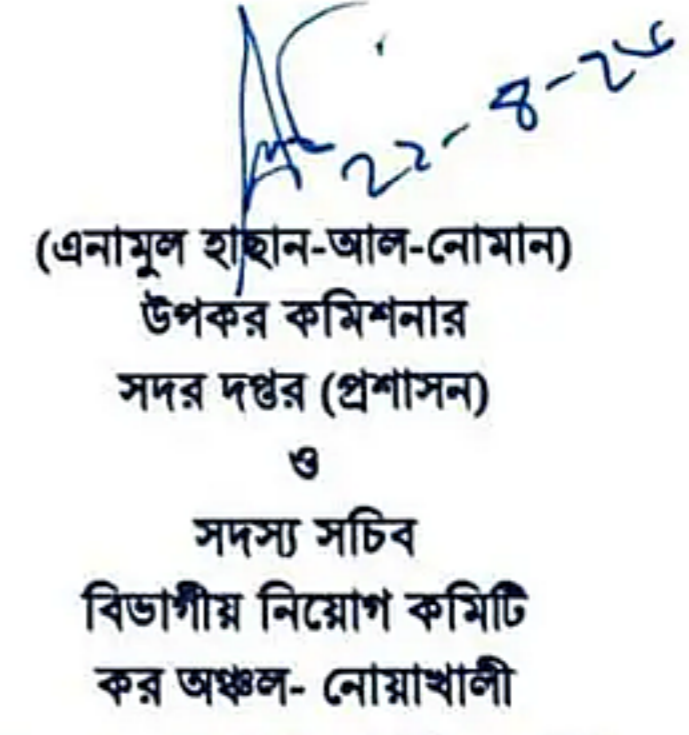 ২২-৪-২৬
(এনামুল হাছান-আল-নোমান)
উপকর কমিশনার
সদর দপ্তর (প্রশাসন)
ও
সদস্য সচিব
বিভাগীয় নিয়োগ কমিটি
কর অঞ্চল- নোয়াখালী